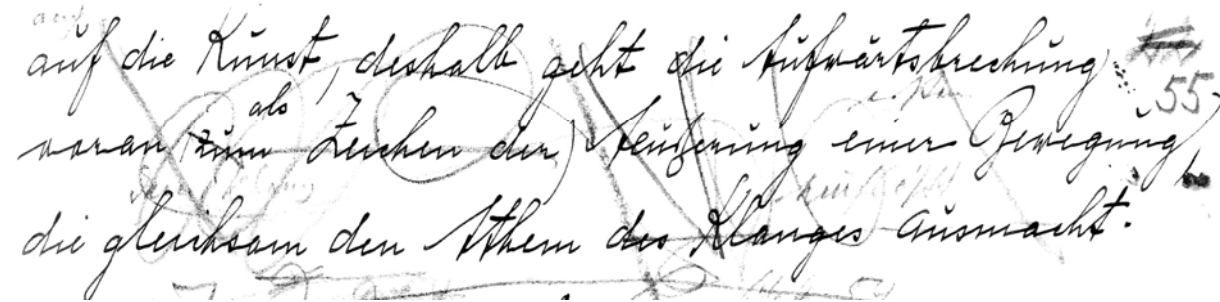 auf die Kunst, deshalb geht die Aufwärtsbrechung
55
als
voran zum Zeichen der Äeußerung einer Bewegung,
die gleichsam den Athem des Klanges ausmacht.